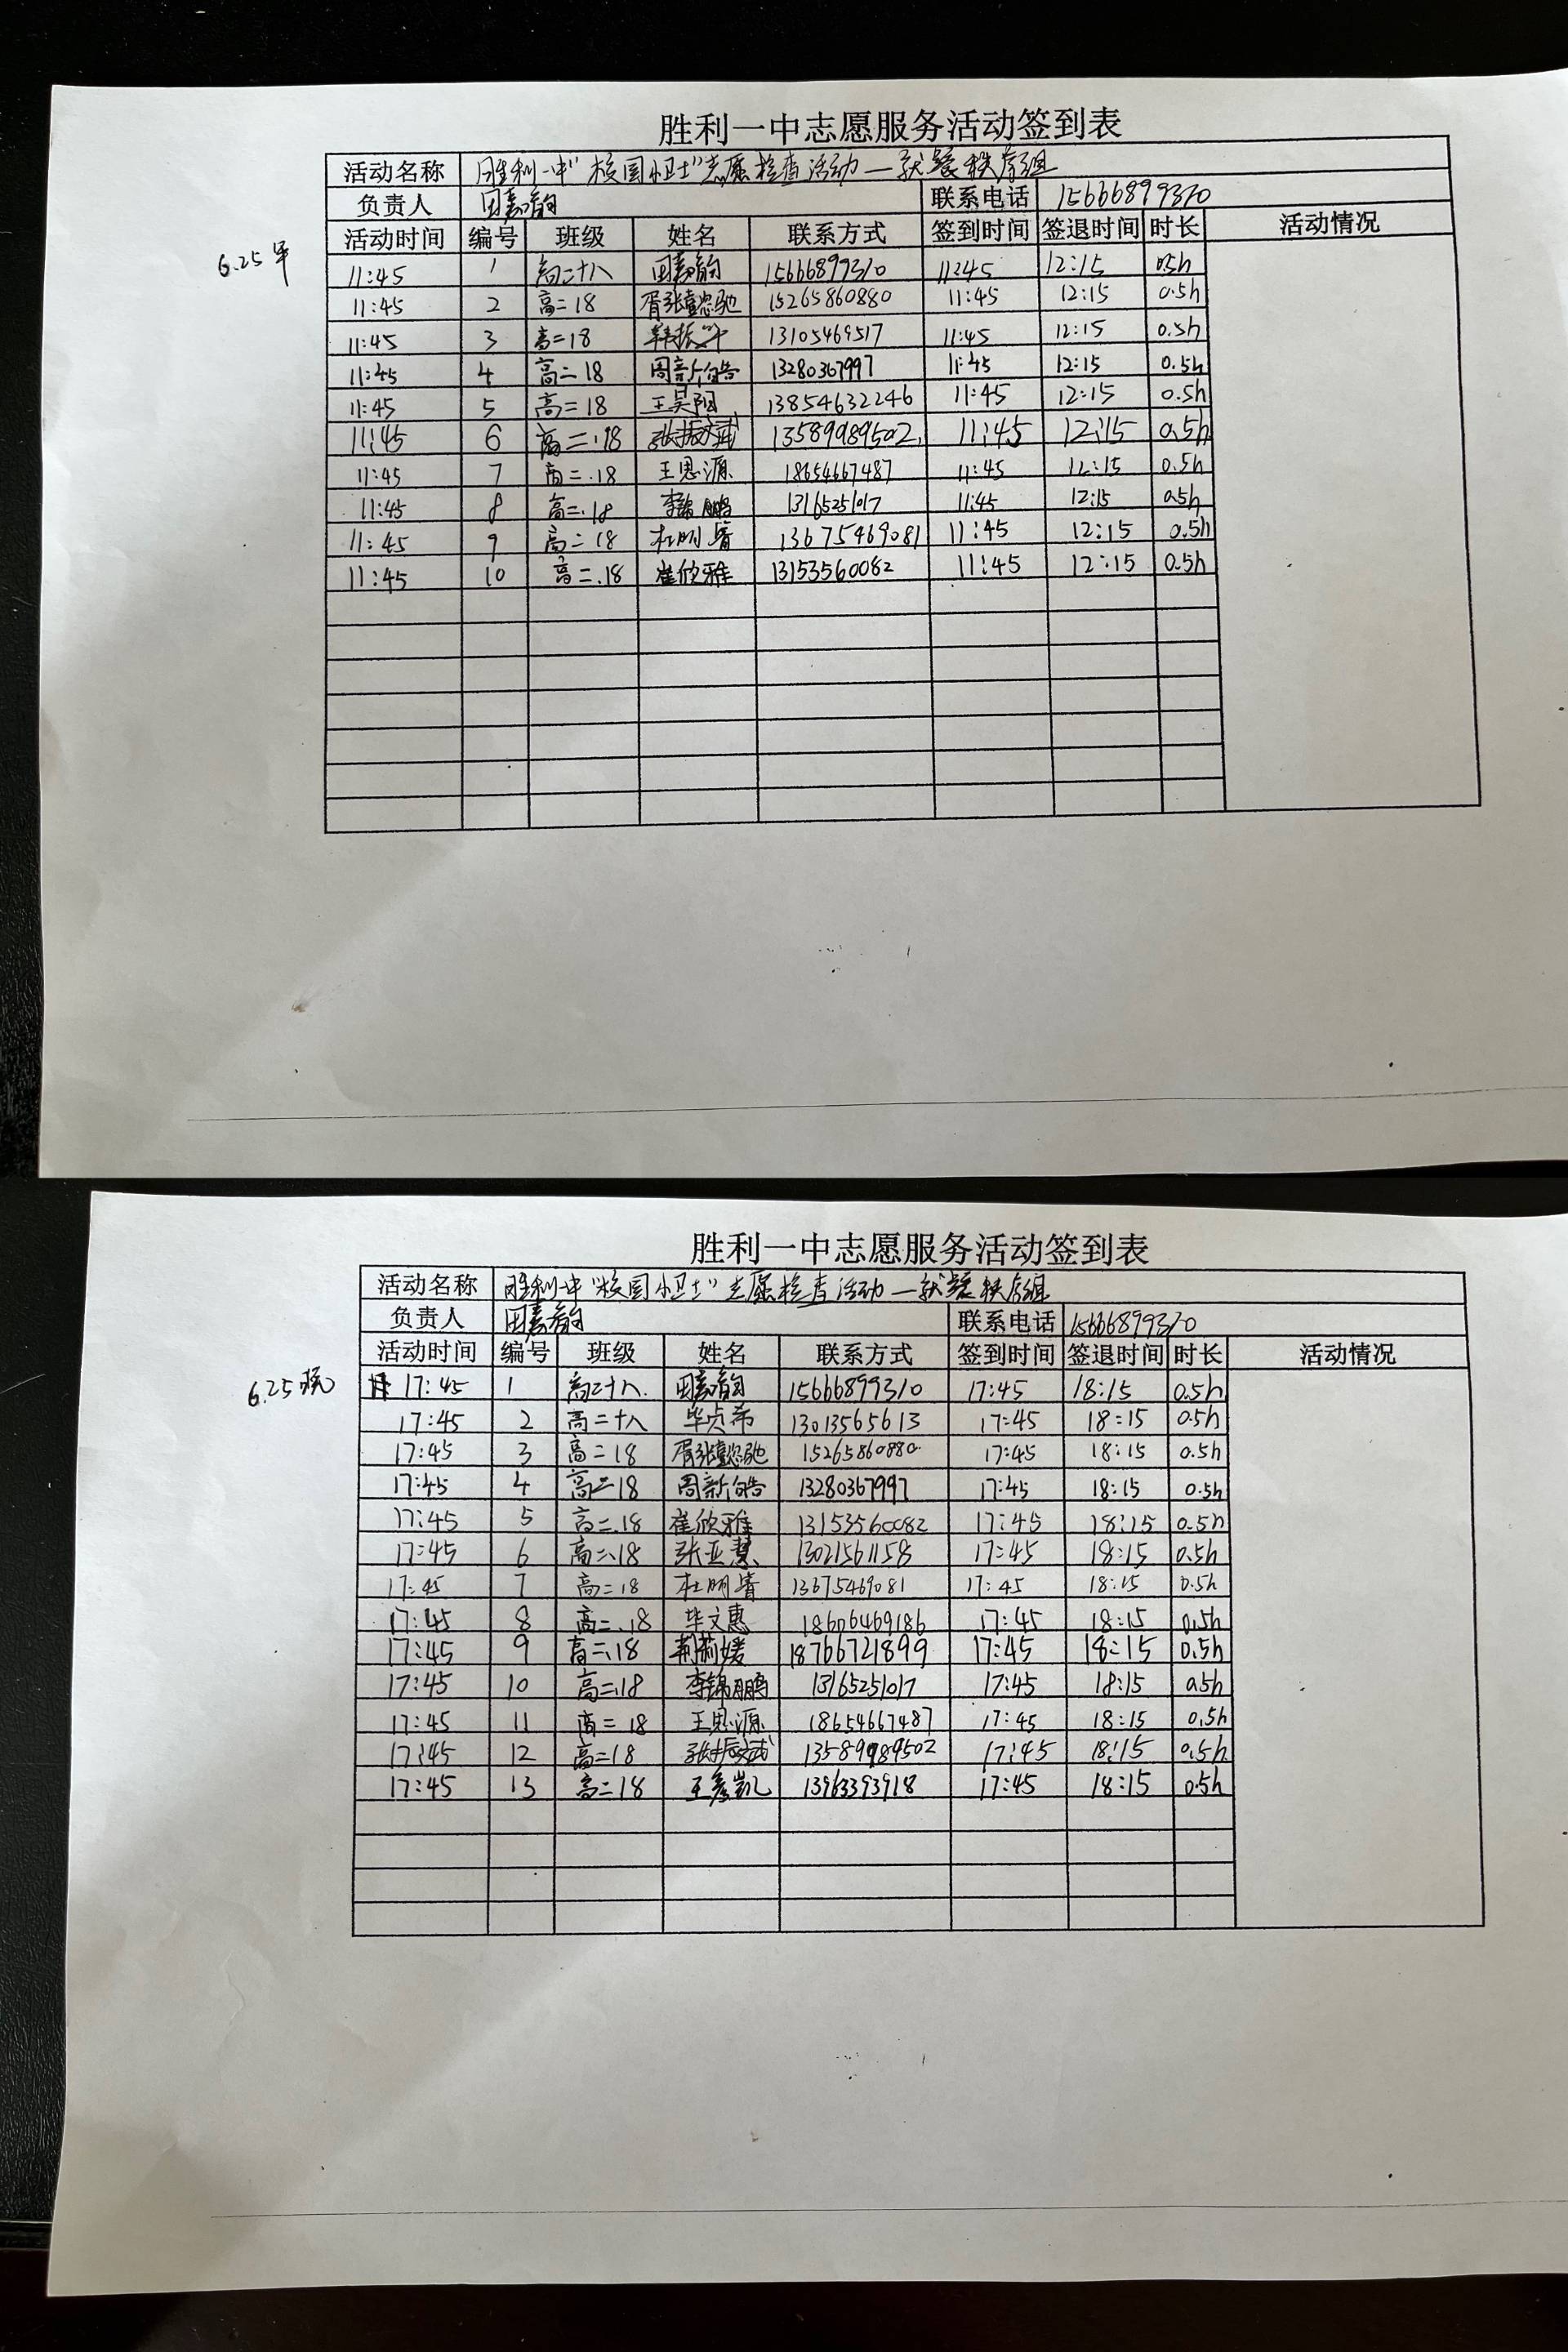 胜利一中志愿服务活动签到表
活动名称 胜利一中"校园卫士"志愿检查活动—就餐秩序组
负责人 田嘉韵 联系电话 15666899310
活动时间 编号 班级 姓名 联系方式 签到时间 签退时间 时长 活动情况
6.25
11:45 1 高二十八 田嘉韵 15666899310 11:45 12:15 0.5h
11:45 2 高二18 胥张懿驰 15265860880 11:45 12:15 0.5h
11:45 3 高二18 13105469517 11:45 12:15 0.5h
11:45 4 高二18 周新皓 13280367997 11:45 12:15 0.5h
11:45 5 高二18 王昊阳 13854632246 11:45 12:15 0.5h
11:45 6 高二.18 张振斌 13589989502 11:45 12:15 0.5h
11:45 7 高二.18 王思源 18654667487 11:45 12:15 0.5h
11:45 8 高二.18 李锦鹏 13165251017 11:45 12:15 0.5h
11:45 9 高二18 杜明睿 13675469081 11:45 12:15 0.5h
11:45 10 高二.18 崔欣雅 13153560082 11:45 12:15 0.5h
胜利一中志愿服务活动签到表
活动名称 胜利一中"校园卫士"志愿检查活动—就餐秩序组
负责人 田嘉韵 联系电话 15666899310
活动时间 编号 班级 姓名 联系方式 签到时间 签退时间 时长 活动情况
6.25晚
17:45 1 高二十八. 田嘉韵 15666899310 17:45 18:15 0.5h
17:45 2 高二十八 毕贞希 13013565613 17:45 18:15 0.5h
17:45 3 高二18 胥张懿驰 15265860880 17:45 18:15 0.5h
17:45 4 高二18 周新皓 13280367997 17:45 18:15 0.5h
17:45 5 高二.18 崔欣雅 13153560082 17:45 18:15 0.5h
17:45 6 高二.18 张亚慧 13021561158 17:45 18:15 0.5h
17:45 7 高二18 杜明睿 13675469081 17:45 18:15 0.5h
17:45 8 高二.18 毕文惠 18606469186 17:45 18:15 0.5h
17:45 9 高二.18 荆莉媛 18766721899 17:45 18:15 0.5h
17:45 10 高二.18 李锦鹏 13165251017 17:45 18:15 0.5h
17:45 11 高二18 王思源 18654667487 17:45 18:15 0.5h
17:45 12 高二18 张振斌 13589989502 17:45 18:15 0.5h
17:45 13 高二18 王彦凯 13963393918 17:45 18:15 0.5h